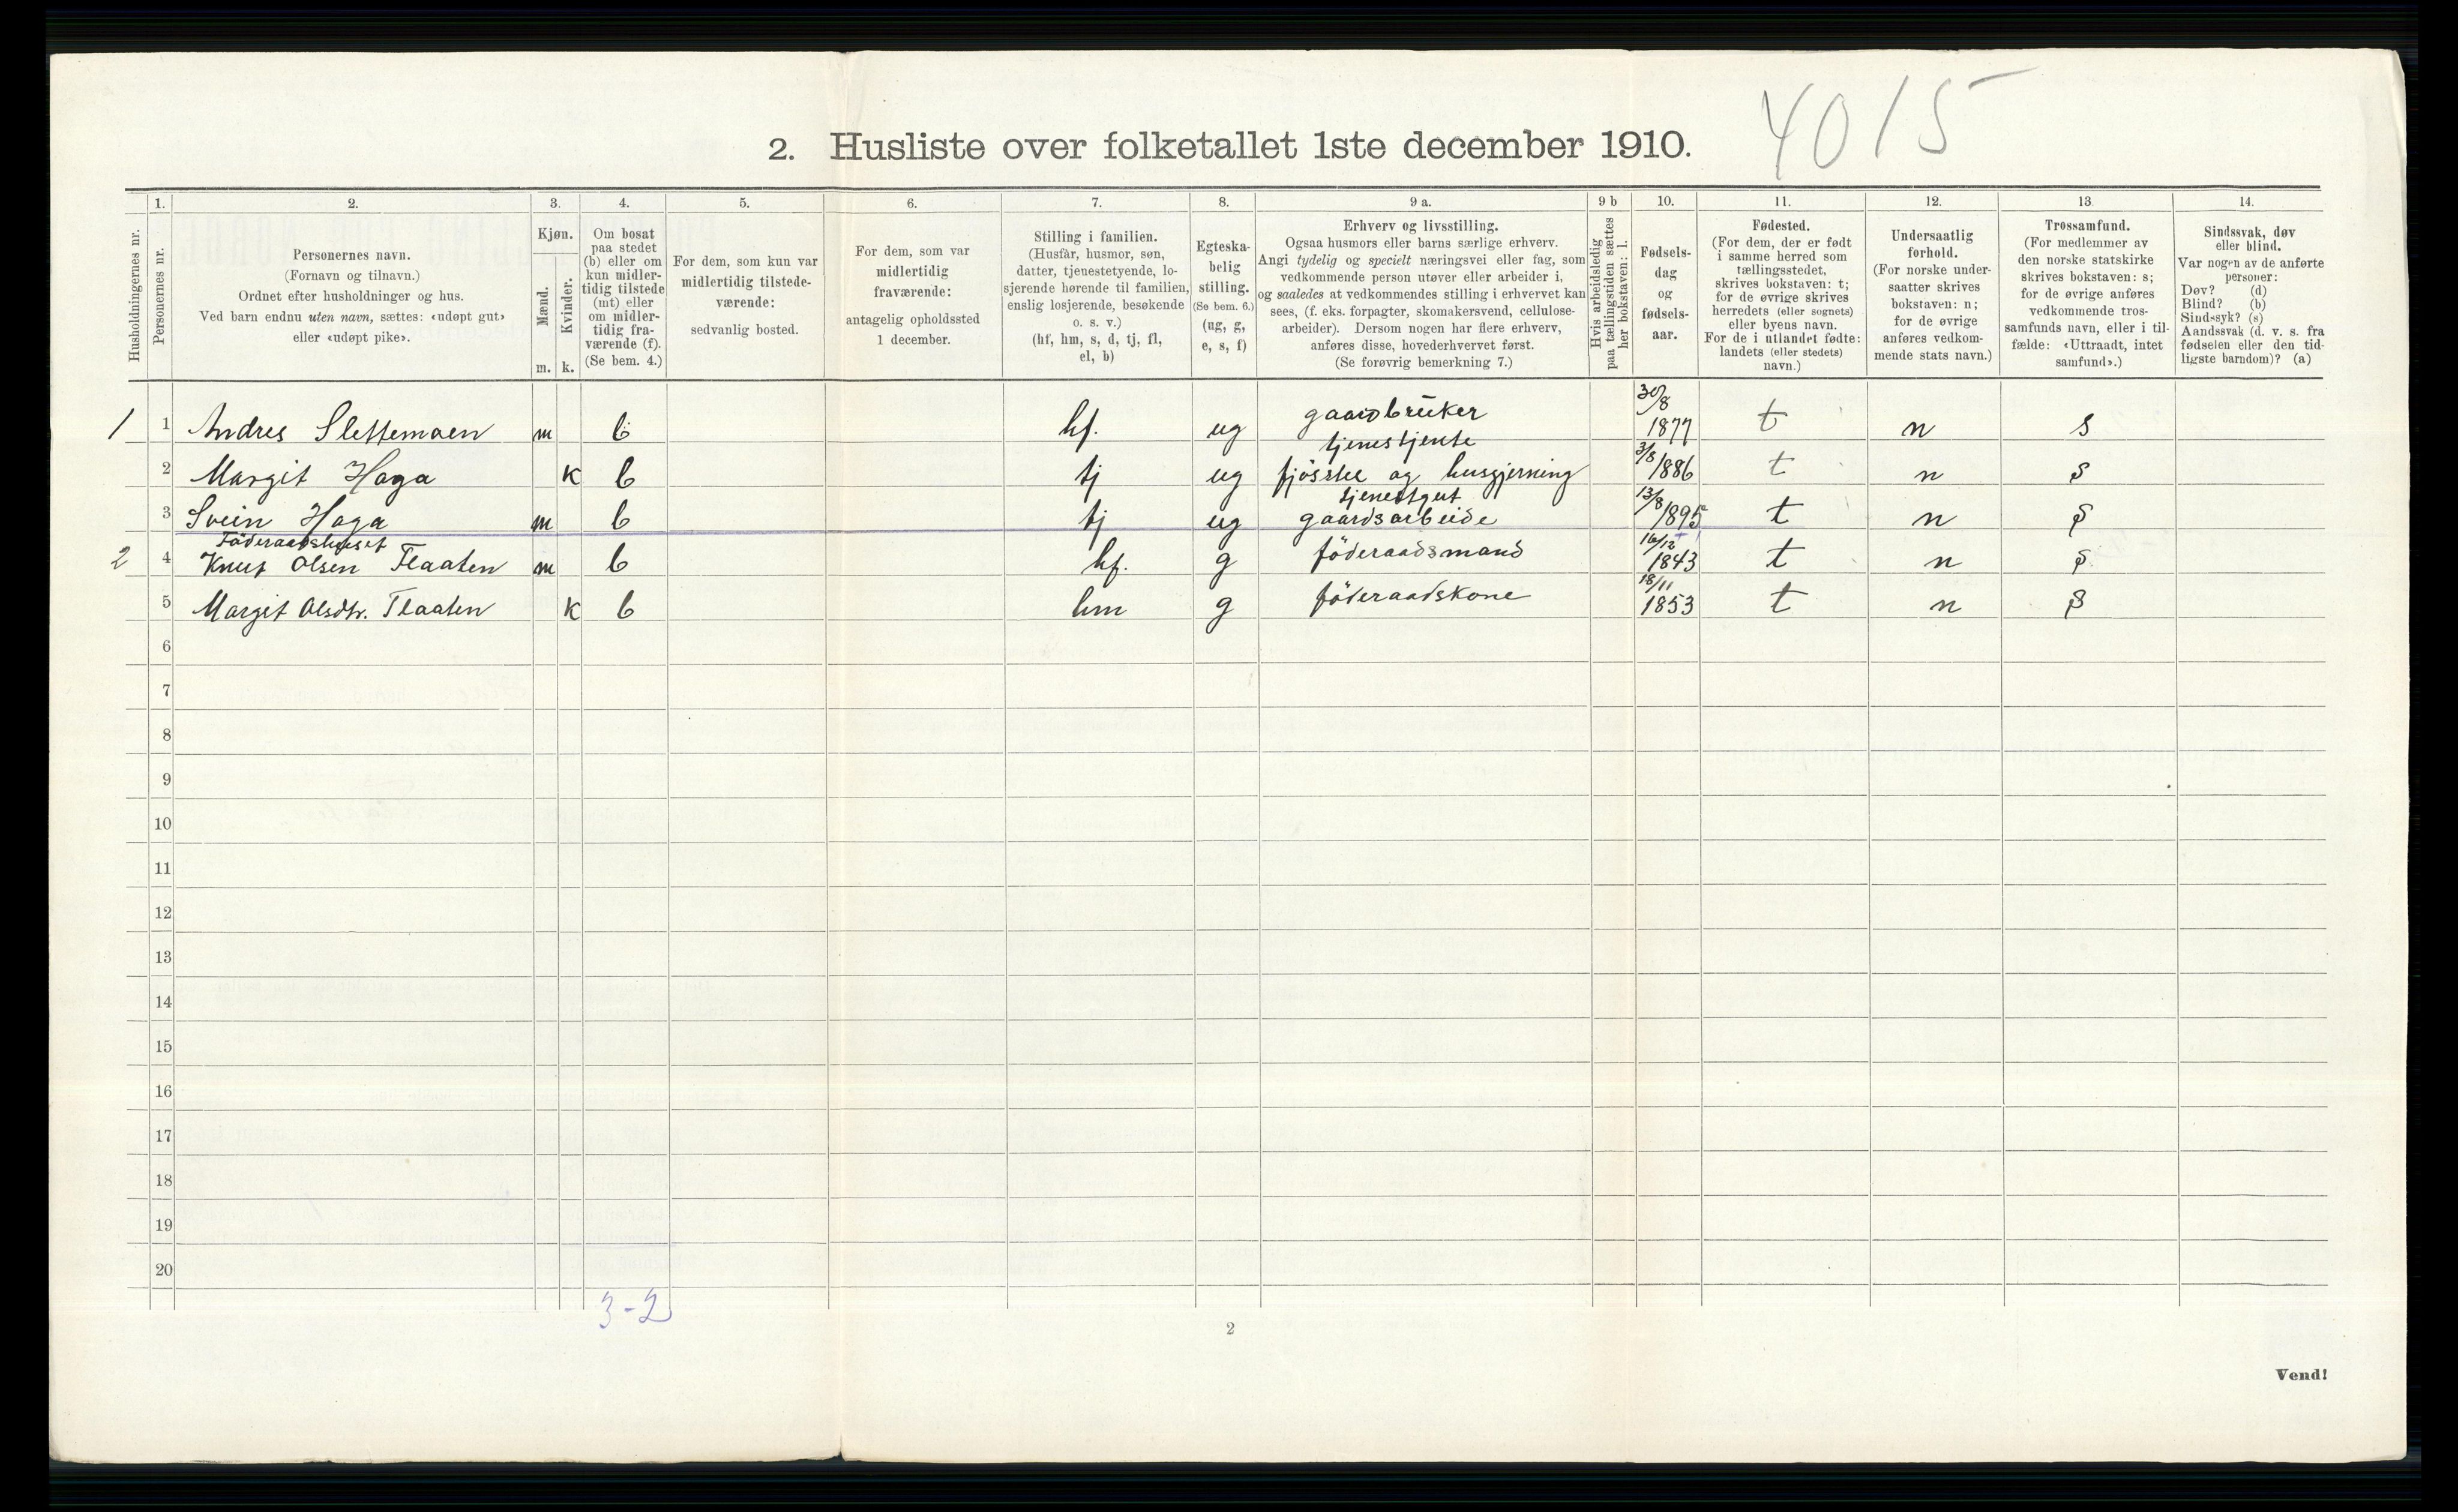 4015
2. Husliste over folketallet 1ste december 1910.
Husholdningernes nr.
1.
Personernes nr.
2.
Personernes navn.
(Fornavn og tilnavn.)
Ordnet efter husholdninger og hus.
Ved barn endnu uten navn, sættes: «udøpt gut»
eller «udøpt pike».
3.
Kjøn.
Mænd.
Kvinder.
m. k.
4.
Om bosat
paa stedet
(b) eller om
kun midler-
tidig tilstede
(mt) eller
om midler-
tidig fra-
værende (f).
(Se bem. 4.)
5.
For dem, som kun var
midlertidig tilstede-
værende:
sedvanlig bosted.
6.
For dem, som var
midlertidig
fraværende:
antagelig opholdssted
1 december.
7.
Stilling i familien.
(Husfar, husmor, søn,
datter, tjenestetyende, lo-
sjerende hørende til familien,
enslig losjerende, besøkende
o. s. v.)
(hf, hm, s, d, tj, fl,
el, b)
8.
Egteska-
belig
stilling.
(Se bem. 6.)
(ug, g,
e, s, f)
9 a.
Erhverv og livsstilling.
Ogsaa husmors eller barns særlige erhverv.
Angi tydelig og specielt næringsvei eller fag, som
vedkommende person utøver eller arbeider i,
og saaledes at vedkommendes stilling i erhvervet kan
sees, (f. eks. forpagter, skomakersvend, cellulose-
arbeider). Dersom nogen har flere erhverv,
anføres disse, hovederhvervet først.
(Se forøvrig bemerkning 7.)
9 b
Hvis arbeidsledig
paa tællingstiden sættes
her bokstaven: l.
10.
Fødsels-
dag
og
fødsels-
aar.
11.
Fødested.
(For dem, der er født
i samme herred som
tællingsstedet,
skrives bokstaven: t;
for de øvrige skrives
herredets (eller sognets)
eller byens navn.
For de i utlandet fødte:
landets (eller stedets)
navn.)
12.
Undersaatlig
forhold.
(For norske under-
saatter skrives
bokstaven: n;
for de øvrige
anføres vedkom-
mende stats navn.)
13
Trossamfund.
(For medlemmer av
den norske statskirke
skrives bokstaven: s;
for de øvrige anføres
vedkommende tros-
samfunds navn, eller i til-
fælde: «Uttraadt, intet
samfund».)
14.
Sindssvak, døv
eller blind.
Var nogen av de anførte
personer:
Døv? (d)
Blind? (b)
Sindssyk? (s)
Aandssvak (d. v. s. fra
fødselen eller den tid-
ligste barndom)? (a)
1 1 Andres Slettemoen m b hf. ug gaardbruker 30/8 1877 t n s
tjenestjente
2 Margit Haga k b tj ug fjösstel og husgjerning 3/8 1886 t n s
tjenestgut
3 Svein Haga m b tj ug gaardsarbeide 13/8 1895 t n s
Föderaadshuset
2 4 Knut Olsen Flaaten m b hf. g föderaadsmand 16/12 1843 t n s
5 Margit Olsdtr. Flaaten k b hm g föderaadskone 18/11 1853 t n s
6
7
8
9
10
11
12
13
14
15
16
17
18
19
20
3-2
2
Vend!